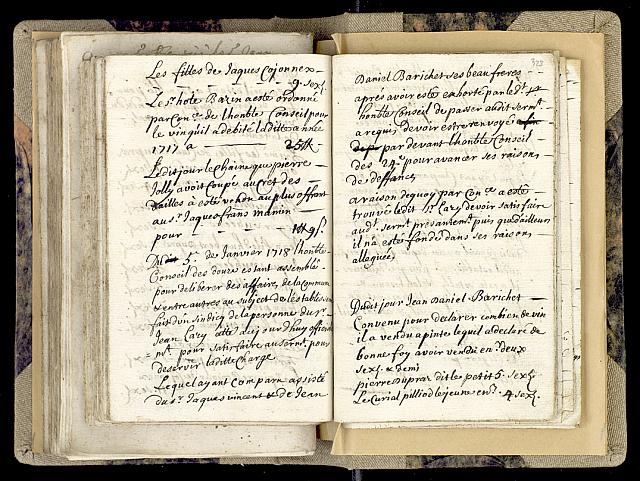 Les filles de Jaques Cojonnex
9 sex.
Le Sr. hote Bazin a esté ordonné
par Con.le de l'honble Conseil pour
le vin qu'il a debité laditte année
1717 a 25 ff.
Ledit jour le Chaine que pierre
Jolly avoit Coupé au Cret des
tailles a esté vendu au plus offrant
au Sr. Jaques frans manin
pour
Dudit 5e. de Janvier 1718 l'honble
Conseil des douze estant assemblé
pour deliberer des affaires de la commune
& entre autres au subject de l'establiss
fait d'un sindicq de la personne du Sr.
Jean Cazy citté aujourdhuy
pour satisfaire au serm.t pour
desservir laditte Charge
Lequel ayant comparu assisté
du Sr. Jaques vincent & de Jean
323
Daniel Barichet ses beau freres
aprés avoir esté exhorté par led.t
honble Conseil de passer audit serm.t
a requis devoir estre renvoyé
par devant l'honble Conseil
des 24. pour avancer ses raisons
de deffances
a raison dequoy par Con.le a esté
trouvé ledit Sr. Cazy devoir satisfaire
aud.t serm.t presantem.t puis que d'ailleurs
il n'a esté fondé dans ses raisons
alleguées
Dudit jour Jean Daniel Barichet
Convenu pour declarer combien de vin
il a vendu a pinte lequel a declaré de
bonne foy avoir vendu en deux
sex. & demi
pierre Dupraz dit le petit 5. sex.
Le Curial pilliod le jeune en 4 sex.